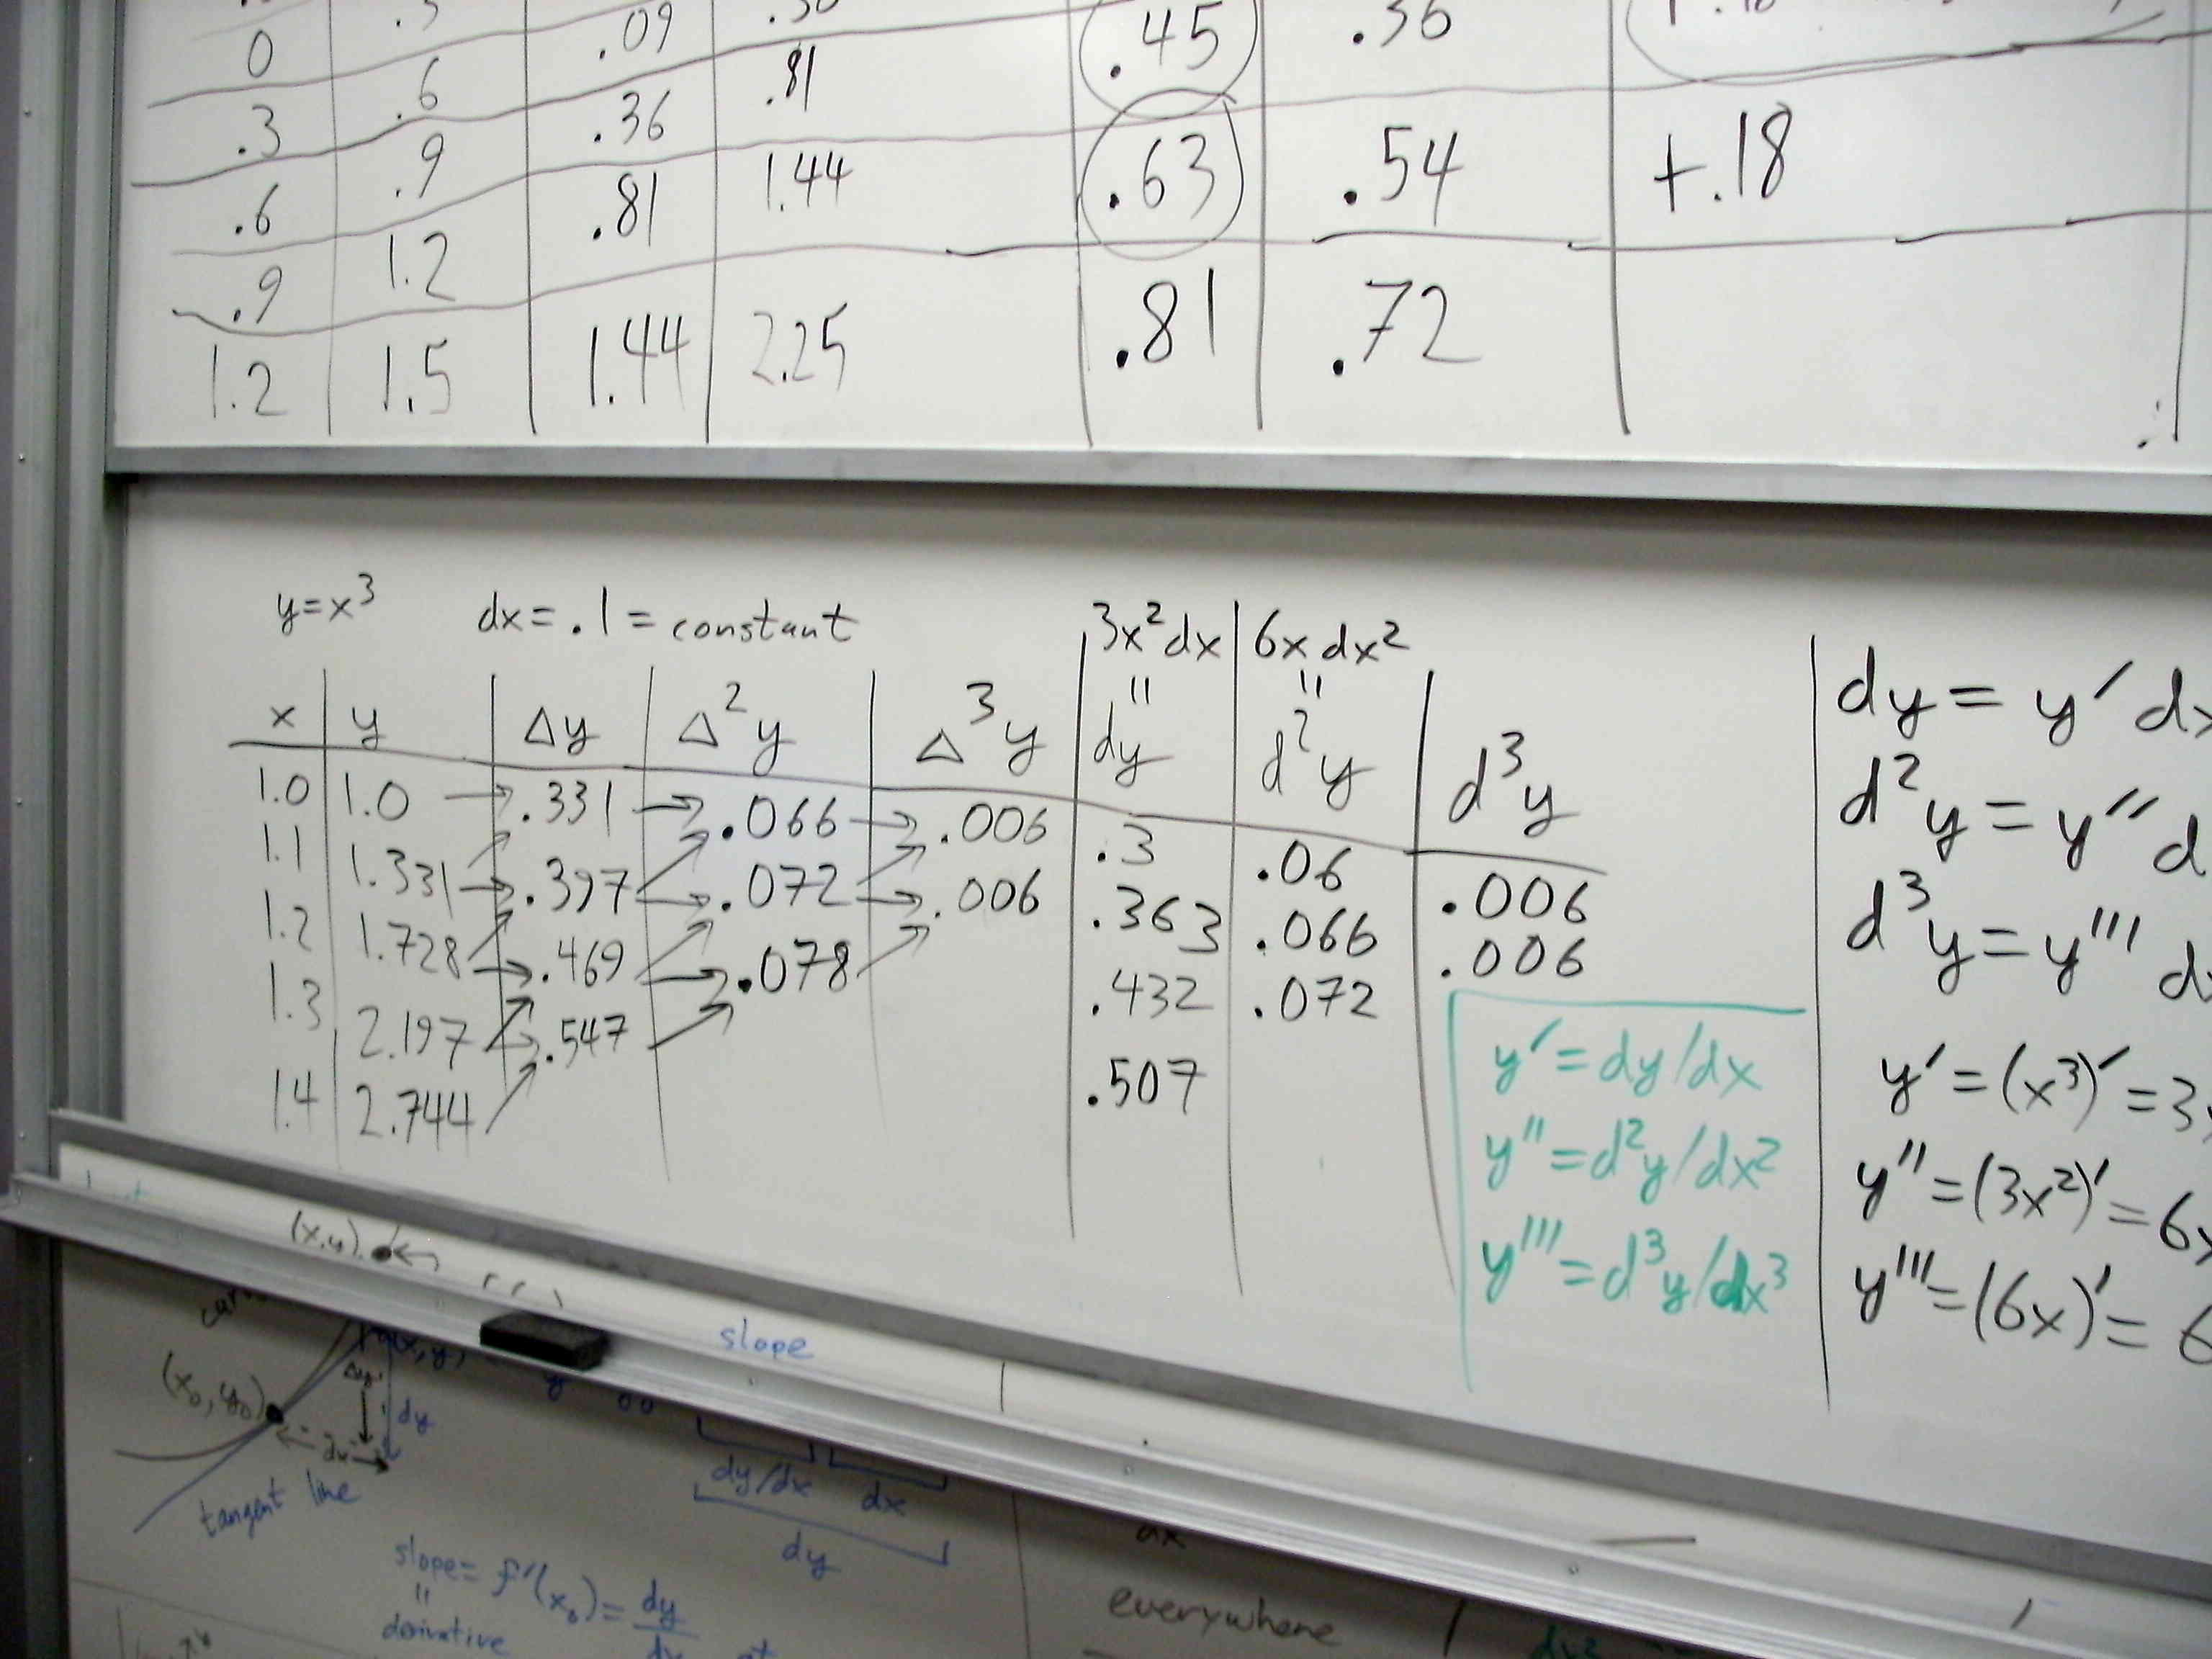 0 .3 .09 .45 .36
.3 .6 .36 .81 .63 .54 +.18
.6 .9 .81 1.44 .81 .72
.9 1.2 1.44 2.25
1.2 1.5
y=x³ dx=.1=constant 3x²dx 6x dx²
" "
x y Δy Δ²y Δ³y dy d²y d³y
1.0 1.0 → .331 → .066 → .006 .3 .06 .006
1.1 1.331 → .397 → .072 → .006 .363 .066 .006
1.2 1.728 → .469 → .078 .432 .072
1.3 2.197 → .547 .507
1.4 2.744
y′=dy/dx
y″=d²y/dx²
y‴=d³y/dx³
dy=y′dx
d²y=y″d
d³y=y‴d
y′=(x³)′=3
y″=(3x²)′=6x
y‴=(6x)′=6
slope
(x₀,y₀)
dy
tangent line
dy/dx dx
dy
slope=f′(x₀)=dy
"
derivative
everywhere